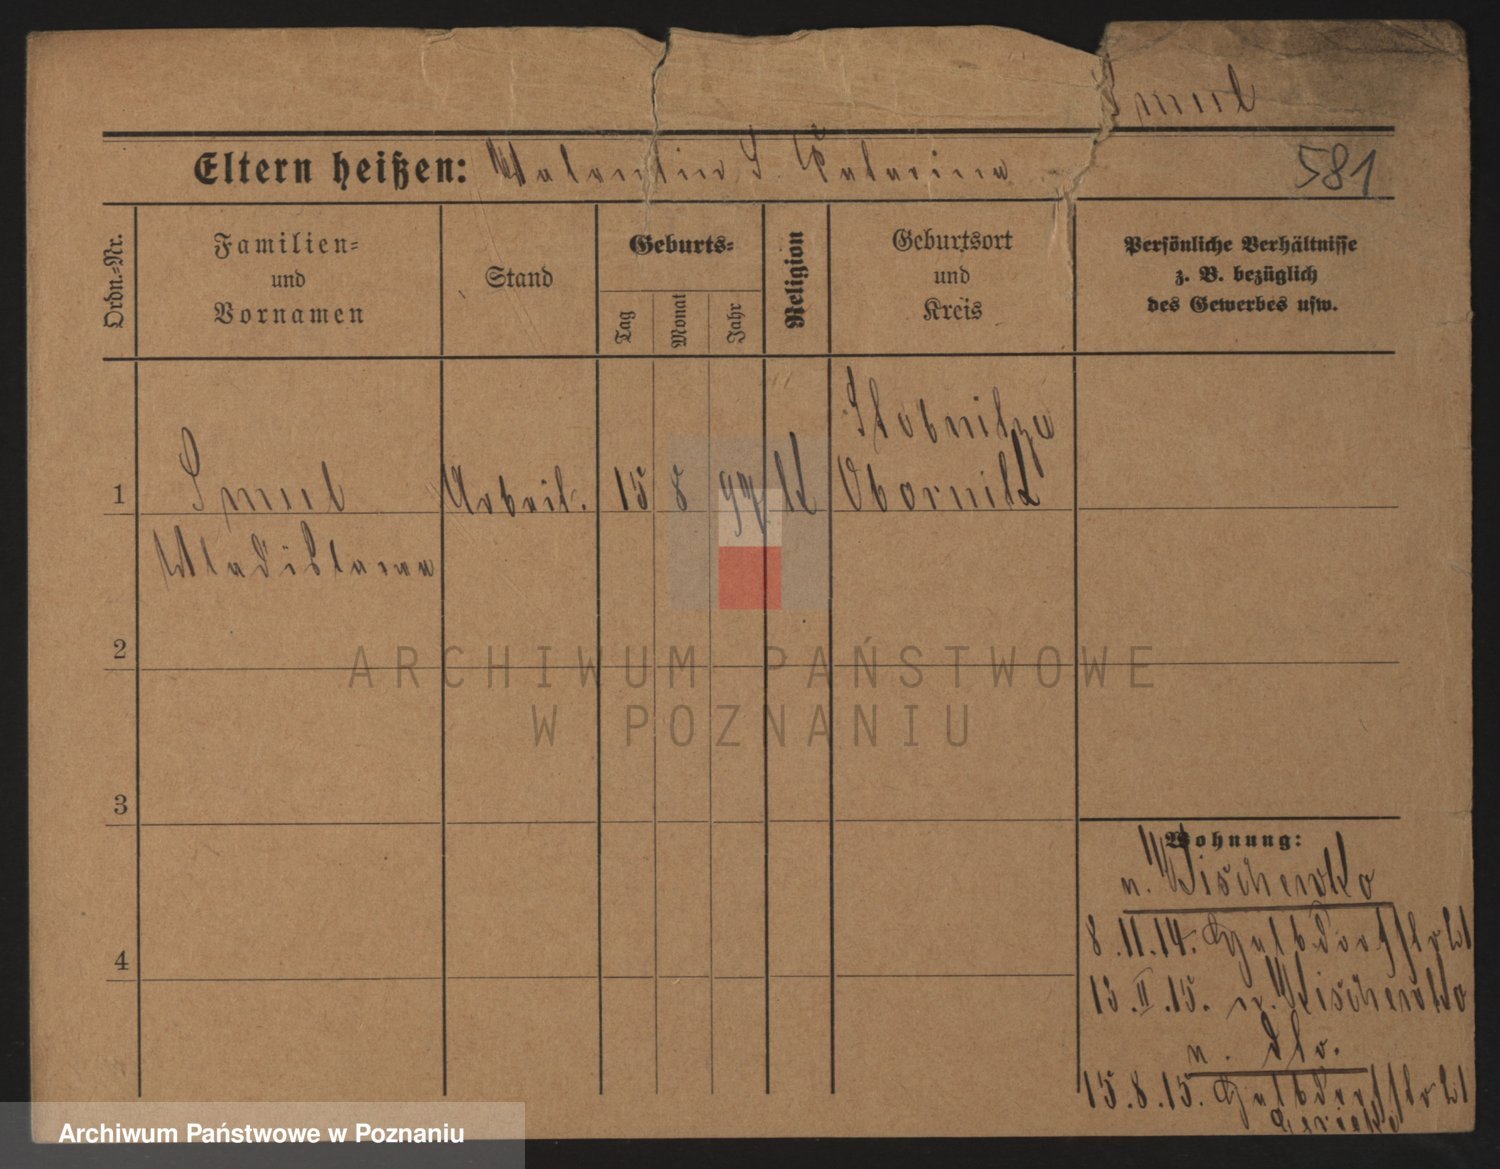 Smul
Eltern heißen: Valentin S. Katarina
581
Ordn.-Nr.
Familien-
und
Vornamen
Stand
Geburts-
Tag
Monat
Jahr
Religion
Geburtsort
und
Kreis
Persönliche Verhältnisse
z. B. bezüglich
des Gewerbes usw.
1
Smul
Wladislawa
Arbeit.
15
8
97
K
Slobnitze
Obornik
2
3
4
Wohnung:
n. Wischewko
8.11.14.
13.II.15. n. Wischewko
n. dto.
15.8.15.
ARCHIWUM PAŃSTWOWE
W POZNANIU
Archiwum Państwowe w Poznaniu